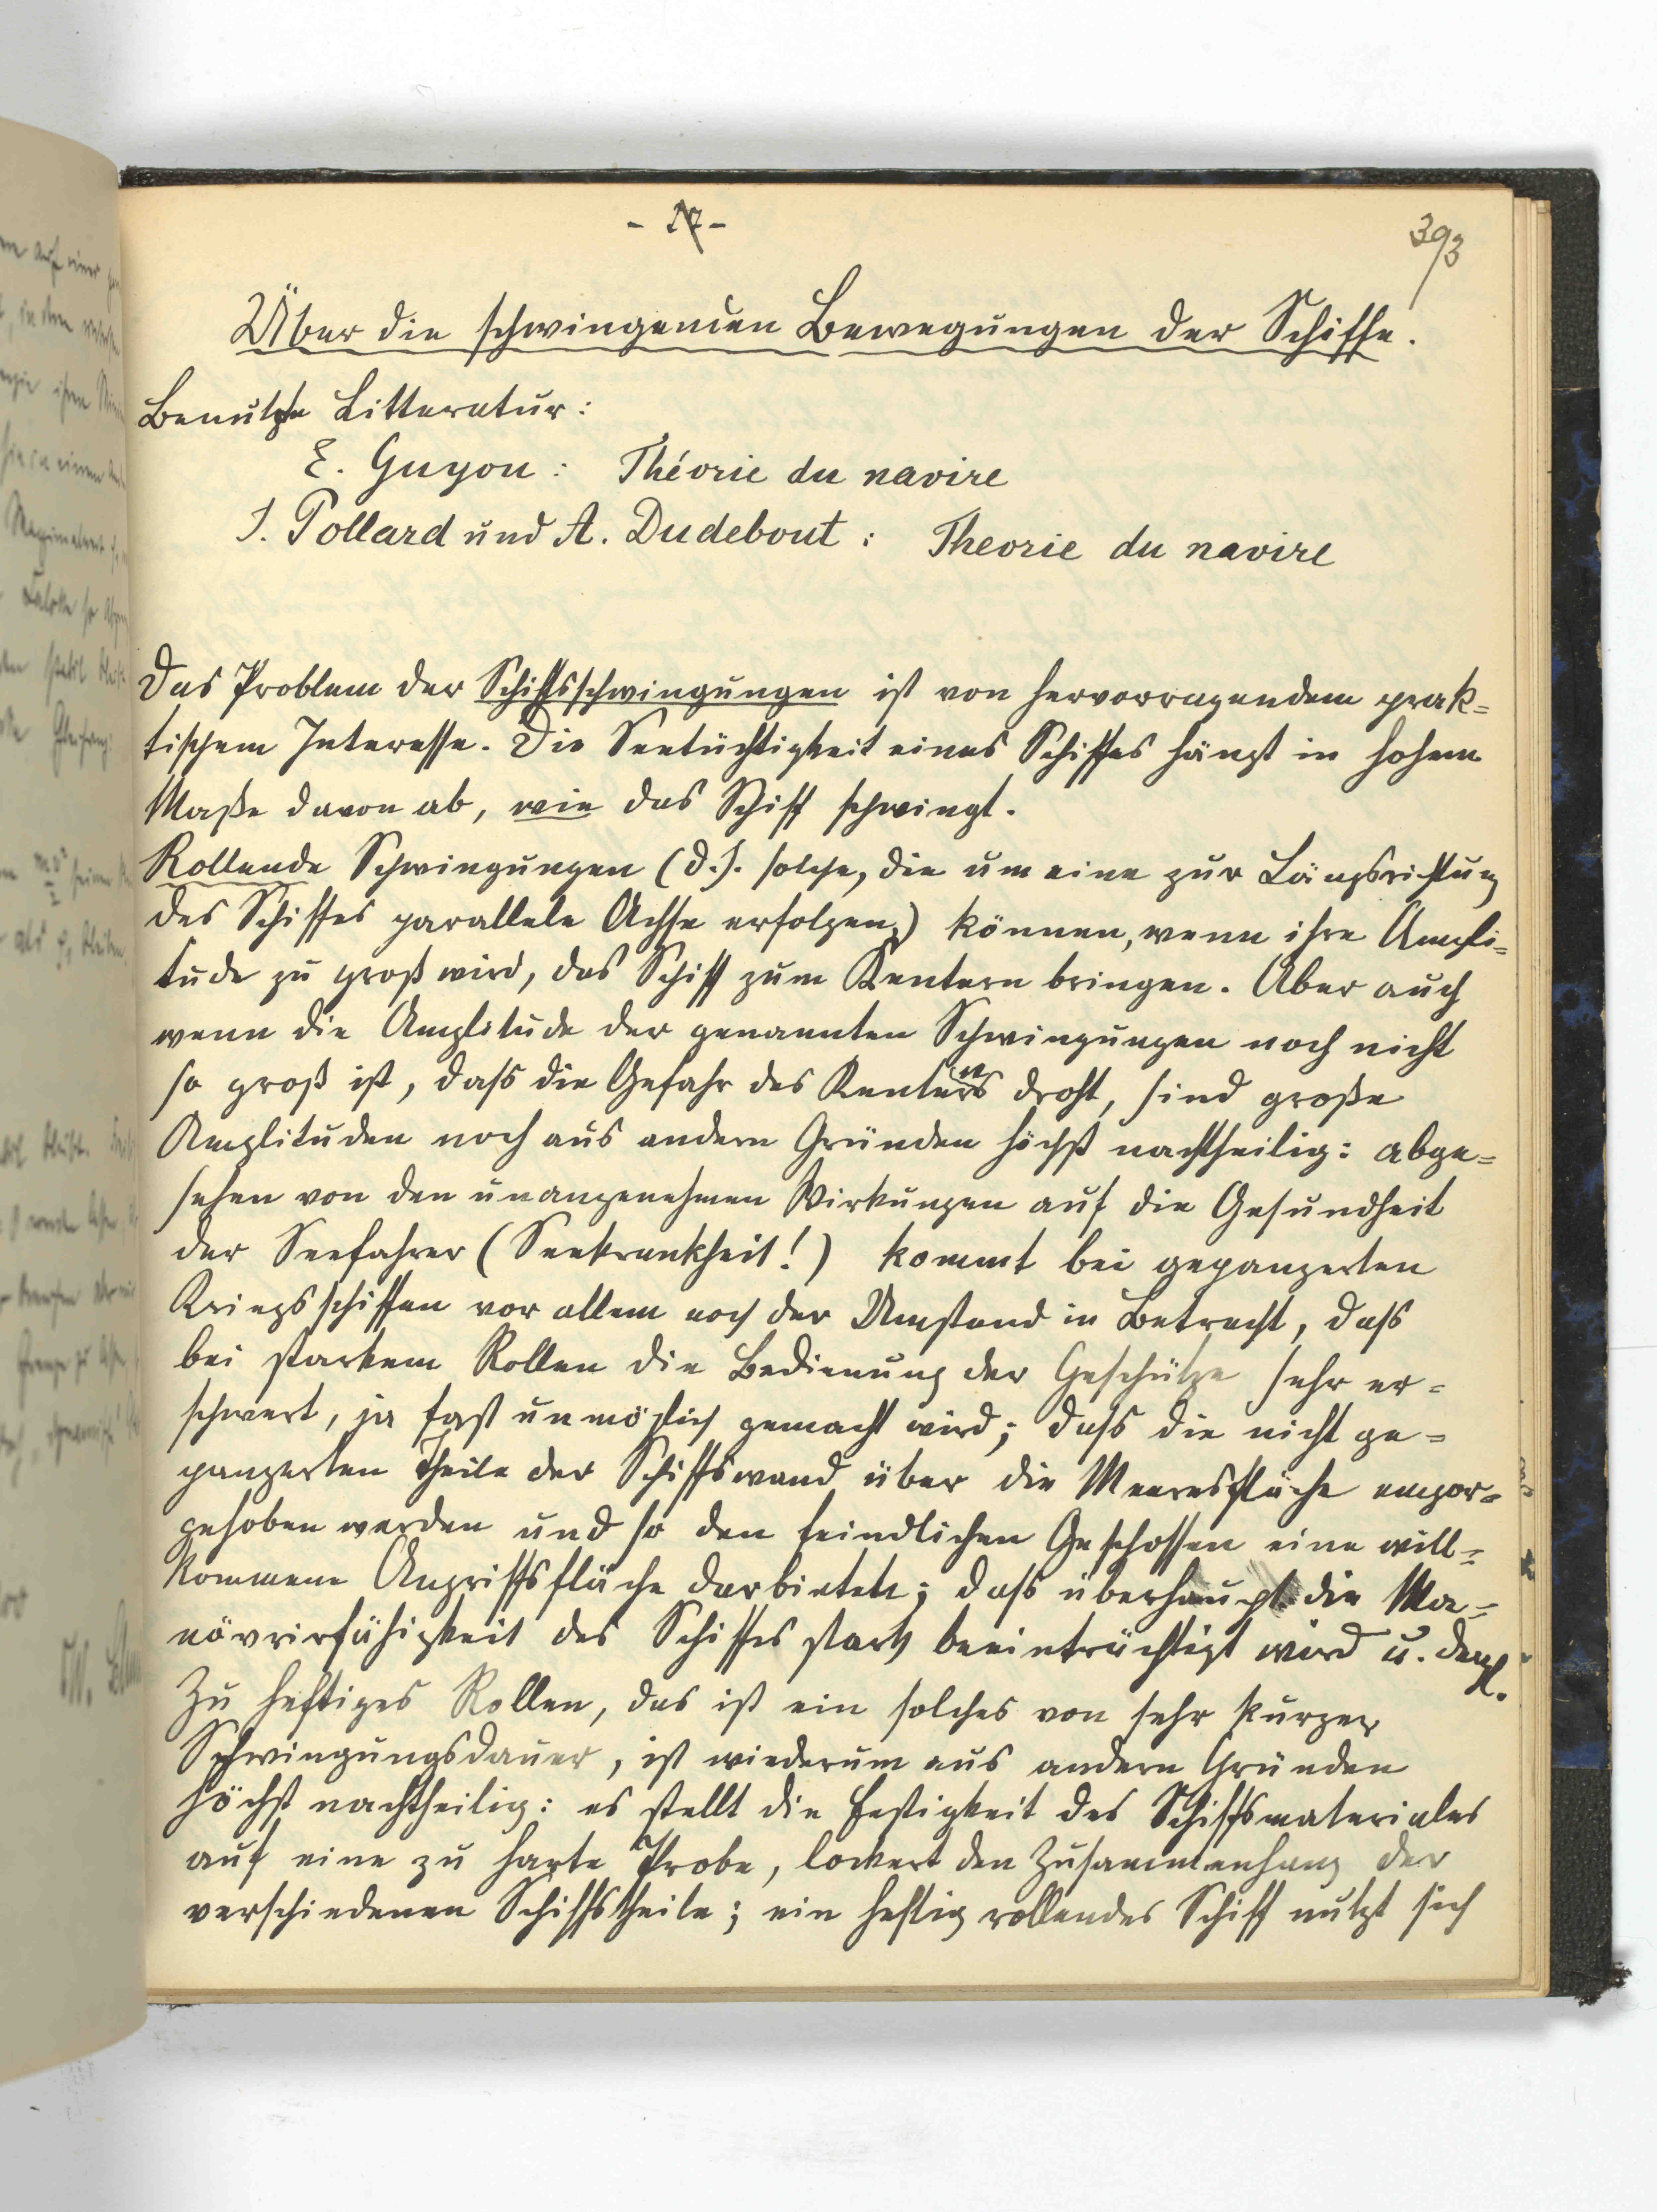 - 17 -
393
Über die schwingenden Bewegungen der Schiffe.
Benutzte Litteratur:
E. Guyou: Théorie du navire
J. Pollard und A. Dudebout: Theorie du navire
Das Problem der Schiffsschwingungen ist von hervorragendem prak=
tischem Interesse. Die Seetüchtigkeit eines Schiffes hängt in hohem
Maße davon ab, wie das Schiff schwingt.
Rollende Schwingungen (d.h. solche, die um eine zur Längsrichtung
des Schiffes parallele Achse erfolgen,) können, wenn ihre Ampli=
tude zu groß wird, das Schiff zum Kentern bringen. Aber auch
wenn die Amplitude der genannten Schwingungen noch nicht
so groß ist, dass die Gefahr des Kenterns droht, sind große
Amplituden noch aus andern Gründen höchst nachtheilig: abge=
sehen von den unangenehmen Wirkungen auf die Gesundheit
der Seefahrer (Seekrankheit!) kommt bei gepanzerten
Kriegsschiffen vor allem noch der Umstand in Betracht, dass
bei starkem Rollen die Bedienung der Geschütze sehr er=
schwert, ja fast unmöglich gemacht wird; dass die nicht ge=
panzerten Theile der Schiffswand über die Meeresfläche empor=
gehoben werden und so den feindlichen Geschossen eine will=
kommene Angriffsfläche darbieten; dass überhaupt die Ma=
növrirfähigkeit des Schiffes stark beeinträchtigt wird u. dergl.
Zu heftiges Rollen, das ist ein solches von sehr kurzer
Schwingungsdauer, ist wiederum aus andern Gründen
höchst nachtheilig: es stellt die Festigkeit des Schiffsmateriales
auf eine zu harte Probe, lockert den Zusammenhang der
verschiedenen Schiffstheile; ein heftig rollendes Schiff nutzt sich